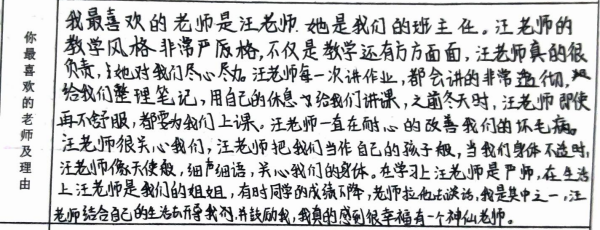 你最喜欢的老师及理由
我最喜欢的老师是汪老师.她是我们的班主任。汪老师的
教学风格非常严厉格,不仅是教学还有方方面面,汪老师真的很
负责,她对我们尽心尽力.汪老师每一次讲作业,都会讲的非常透彻,
给我们整理笔记,用自己的休息给我们讲课,之前冬天时,汪老师即使
再不舒服,都要为我们上课。汪老师一直在耐心的改善我们的坏毛病。
汪老师很关心我们,汪老师把我们当作自己的孩子般,当我们身体不适时,
汪老师像天使般,细声细语,关心我们的身体。在学习上汪老师是严师,在生活
上汪老师是我们的姐姐,有时同学的成绩下降,老师拉他去谈话,我是其中之一,汪
老师结合自己的生活去开导我们,并鼓励我,我真的感到很幸福有一个神仙老师。